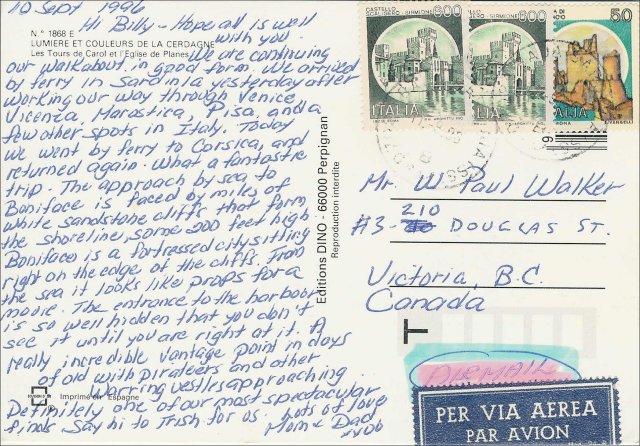 10 Sept 1996
Hi Billy - Hope all is well
with you.
N.° 1868 E
LUMIERE ET COULEURS DE LA CERDAGNE
Les Tours de Carol et l'Eglise de Planes
We are continuing
our walkabout in good form. We arrived
by ferry in Sardinia yesterday after
working our way through Venice
Vicenza, Marostica, Pisa, and a
few other spots in Italy. Today
we went by ferry to Corsica, and
returned again. What a fantastic
trip. The approach by sea to
Boniface is faced by miles of
white sandstone cliffs that form
the shoreline, some 200 feet high
Boniface is a fortressed city sitting
right on the edge of the cliffs. From
the sea it looks like props for a
movie. The entrance to the harbour
is so well hidden that you don't
see it until you are right at it. A
really incredible vantage point in days
of old with pirateers and other
warring vestles approaching
Definitely one of our most spectacular
finds. Say hi to Trish for us. Lots of love
Mom & Dad
xxoo
Imprimé en Espagne
Editions DINO - 66000 Perpignan
Reproduction interdite
CASTELLO
SCALIGERO - SIRMIONE
600
ITALIA
SCALIGERO - SIRMIONE
600
ITALIA
50
ITALIA
ROMA
Mr. W Paul Walker
#3- 210 DOUGLAS ST.
Victoria, B.C.
Canada
T
AIRMAIL
PER VIA AEREA
PAR AVION